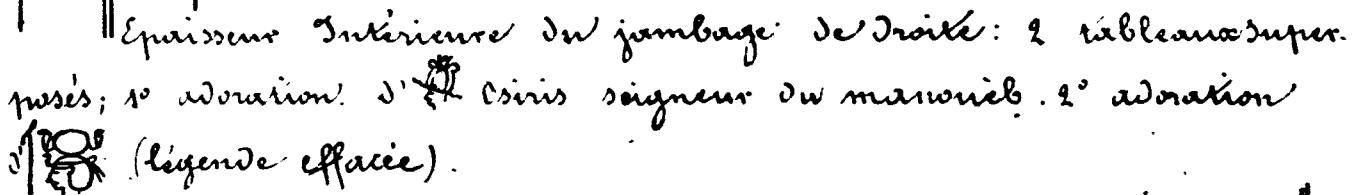 Epaisseur Intérieure du jambage de Droite : 2 tableaux super-
posés; 1° adoration d' Osiris seigneur du manouéb. 2° adoration
d' (légende effacée).